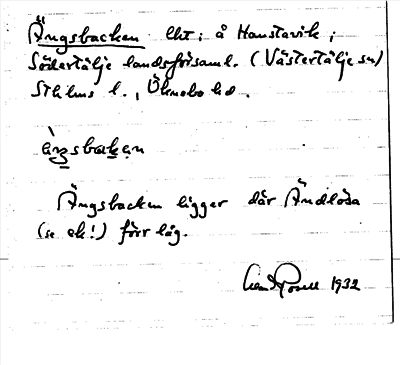 Ängsbacken lht. å Hanstavik i
Södertälje landsförsaml. (Västertälje sn)
Sthlms l., Öknebo hd.
ängsbakən
Ängsbacken ligger där Ändlösa
(se ek!) förr låg.
1932